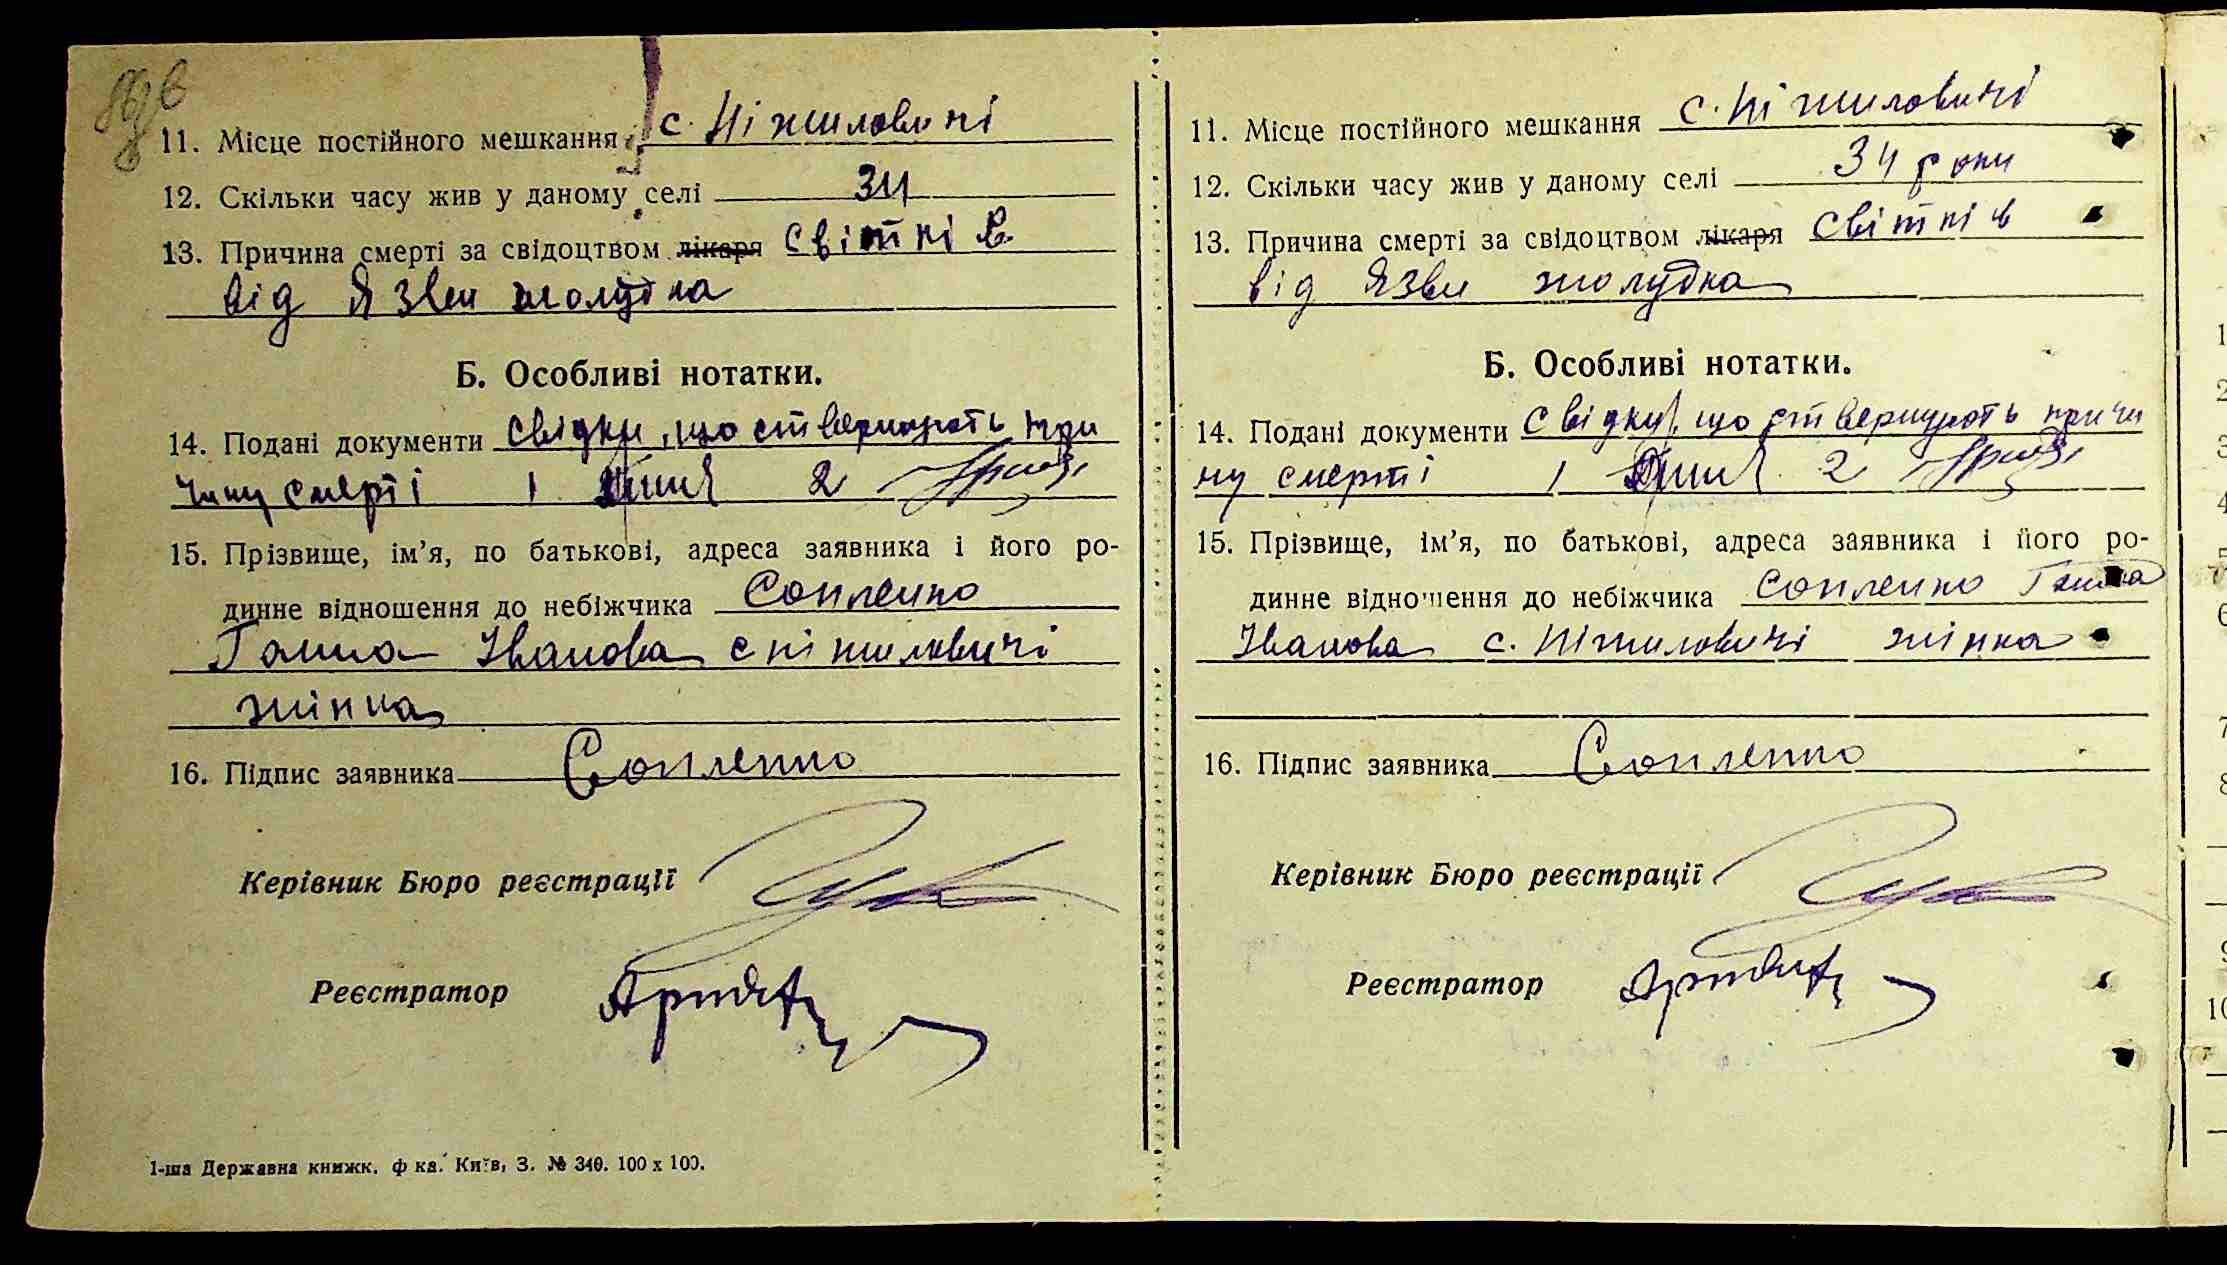 11. Місце постійного мешкання с. Ніжиловичі
12. Скільки часу жив у даному селі 34
13. Причина смерті за свідоцтвом лікаря Світків
від Язви жолудка
Б. Особливі нотатки.
14. Подані документи Свідки, що ствержують при
чину смерті 1 2
15. Прізвище, ім’я, по батькові, адреса заявника і його ро-
динне відношення до небіжчика Сопленко
Ганна Іванова с Ніжиловичі
жінка
16. Підпис заявника Сопленко
Керівник Бюро реєстрації
Реєстратор
1-ша Державна книжк. ф ка. Київ, З. № 340. 100 х 100.
11. Місце постійного мешкання с. Ніжиловичі
12. Скільки часу жив у даному селі 34 роки
13. Причина смерті за свідоцтвом лікаря Світків
від Язви жолудка
Б. Особливі нотатки.
14. Подані документи Свідки, що ствержують причи
ну смерті 1 2
15. Прізвище, ім’я, по батькові, адреса заявника і його ро-
динне відношення до небіжчика Сопленко Ганна
Іванова с. Ніжиловичі жінка
16. Підпис заявника Сопленко
Керівник Бюро реєстрації
Реєстратор